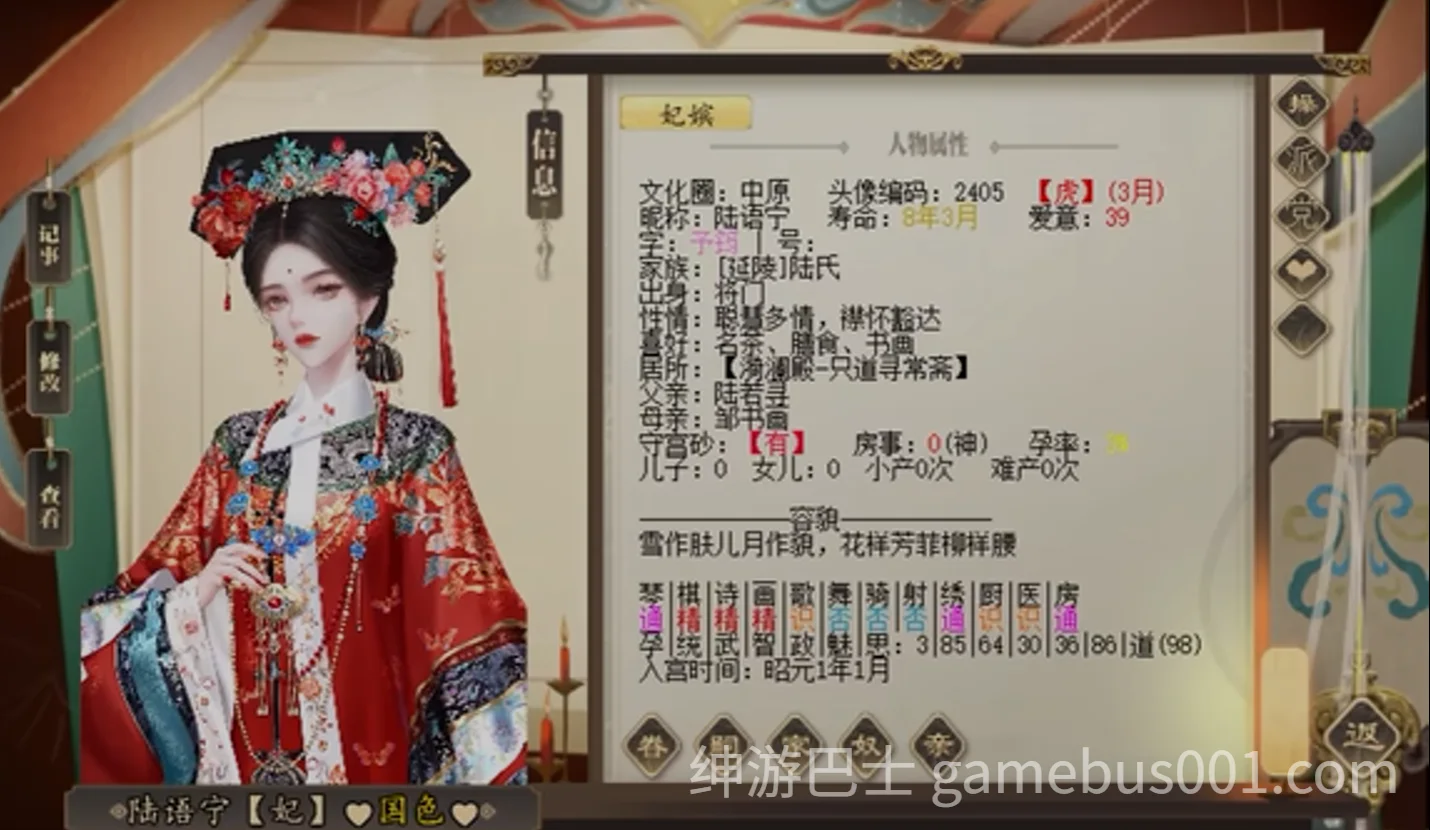 妃嫔
人物属性
信息
记事
修改
查看
文化圈：中原 头像编码：2405 【虎】(3月)
昵称：陆语宁 寿命：8年3月 爱意：39
字：予筠 | 号：
家族：[延陵]陆氏
出身：将门
性情：聪慧多情，襟怀豁达
喜好：名茶、膳食、书画
居所：【漪澜殿-只道寻常斋】
父亲：陆若寻
母亲：邹书画
守宫砂：【有】 房事：0(神) 孕率：
儿子：0 女儿：0 小产0次 难产0次
容貌
雪作肤儿月作貌，花样芳菲柳样腰
琴|棋|诗|画|歌|舞|骑|射|绣|厨|医|房
通|精|精|精|识|否|否|否|通|识|识|通
孕|统|武|智|政|魅|思：3|85|64|30|36|86|道(98)
入宫时间：昭元1年1月
操
派
党
眷
奴
亲
返
陆语宁【妃】国色
绅游巴士 gamebus001.com